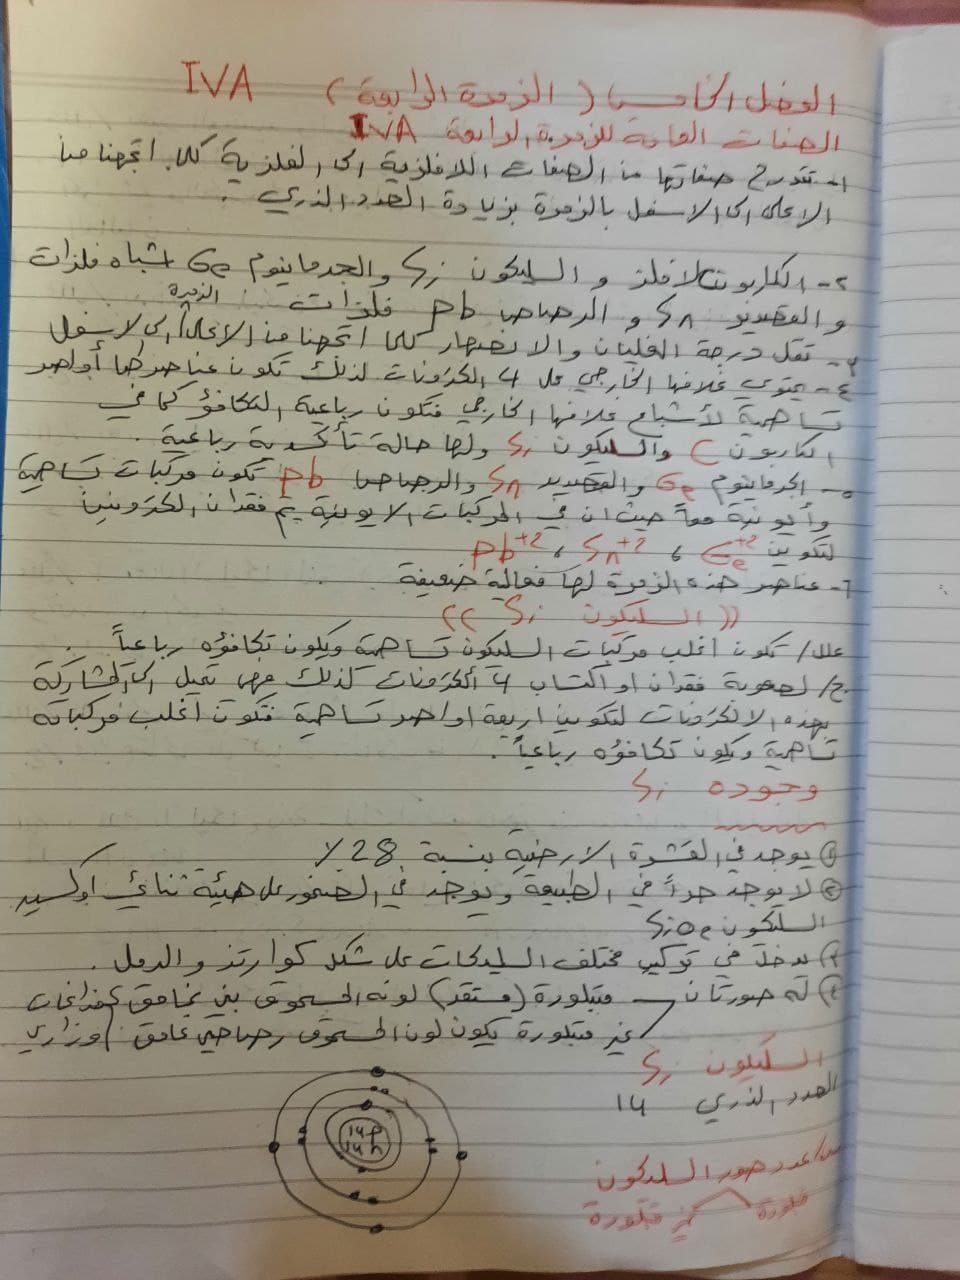 الفصل الخامس (الزمرة الرابعة) IVA
الصفات العامة للزمرة الرابعة IVA
١- تتدرج صفاتها من الصفات اللافلزية الى الفلزية كلما اتجهنا من
الاعلى الى الاسفل بالزمرة بزيادة العدد الذري .
٢- الكاربون لافلز و السليكون Si والجرمانيوم Ge اشباه فلزات
و القصدير Sn و الرصاص Pb فلزات
٣- تقل درجة الغليان والانصهار كلما اتجهنا من الاعلى الى الاسفل الزمرة
٤- يحتوي غلافها الخارجي على 4 الكترونات لذلك تكون عناصرها أواصر
تساهمية لأشباع غلافها الخارجي فتكون رباعية التكافؤ كما في
الكاربون C والسليكون Si ولها حالة تأكسدية رباعية .
٥- الجرمانيوم Ge والقصدير Sn والرصاص Pb تكون مركبات تساهمية
وأيونية معاً حيث ان في المركبات الايونية يتم فقدان الكترونين
لتكوين Ge+2 ، Sn+2 ، Pb+2
٦- عناصر هذه الزمرة لها فعالية ضعيفة
(( السليكون Si ))
علل/ تكون اغلب مركبات السليكون تساهمية ويكون تكافؤه رباعياً.
ج/ لصعوبة فقدان او اكتساب 4 ألكترونات لذلك فهي تميل الى المشاركة
بهذه الالكترونات لتكوين اربعة اواصر تساهمية فتكون أغلب مركباته
تساهمية ويكون تكافؤه رباعياً .
وجوده Si
① يوجد في القشرة الارضية بنسبة 28٪
② لا يوجد حراً في الطبيعة ويوجد في الصخور على هيئة ثنائي اوكسيد
السليكون SiO2
③ يدخل في تركيب مختلف السليكات على شكل كوارتز والرمل .
④ له صورتان متبلورة (مستقر) لونه المسحوق بني غامق
غير متبلورة يكون لون المسحوق رصاصي غامق / وزاري
السليكون Si
العدد الذري 14
14P
14n
س/ عدد صور السليكون
متبلورة غير متبلورة